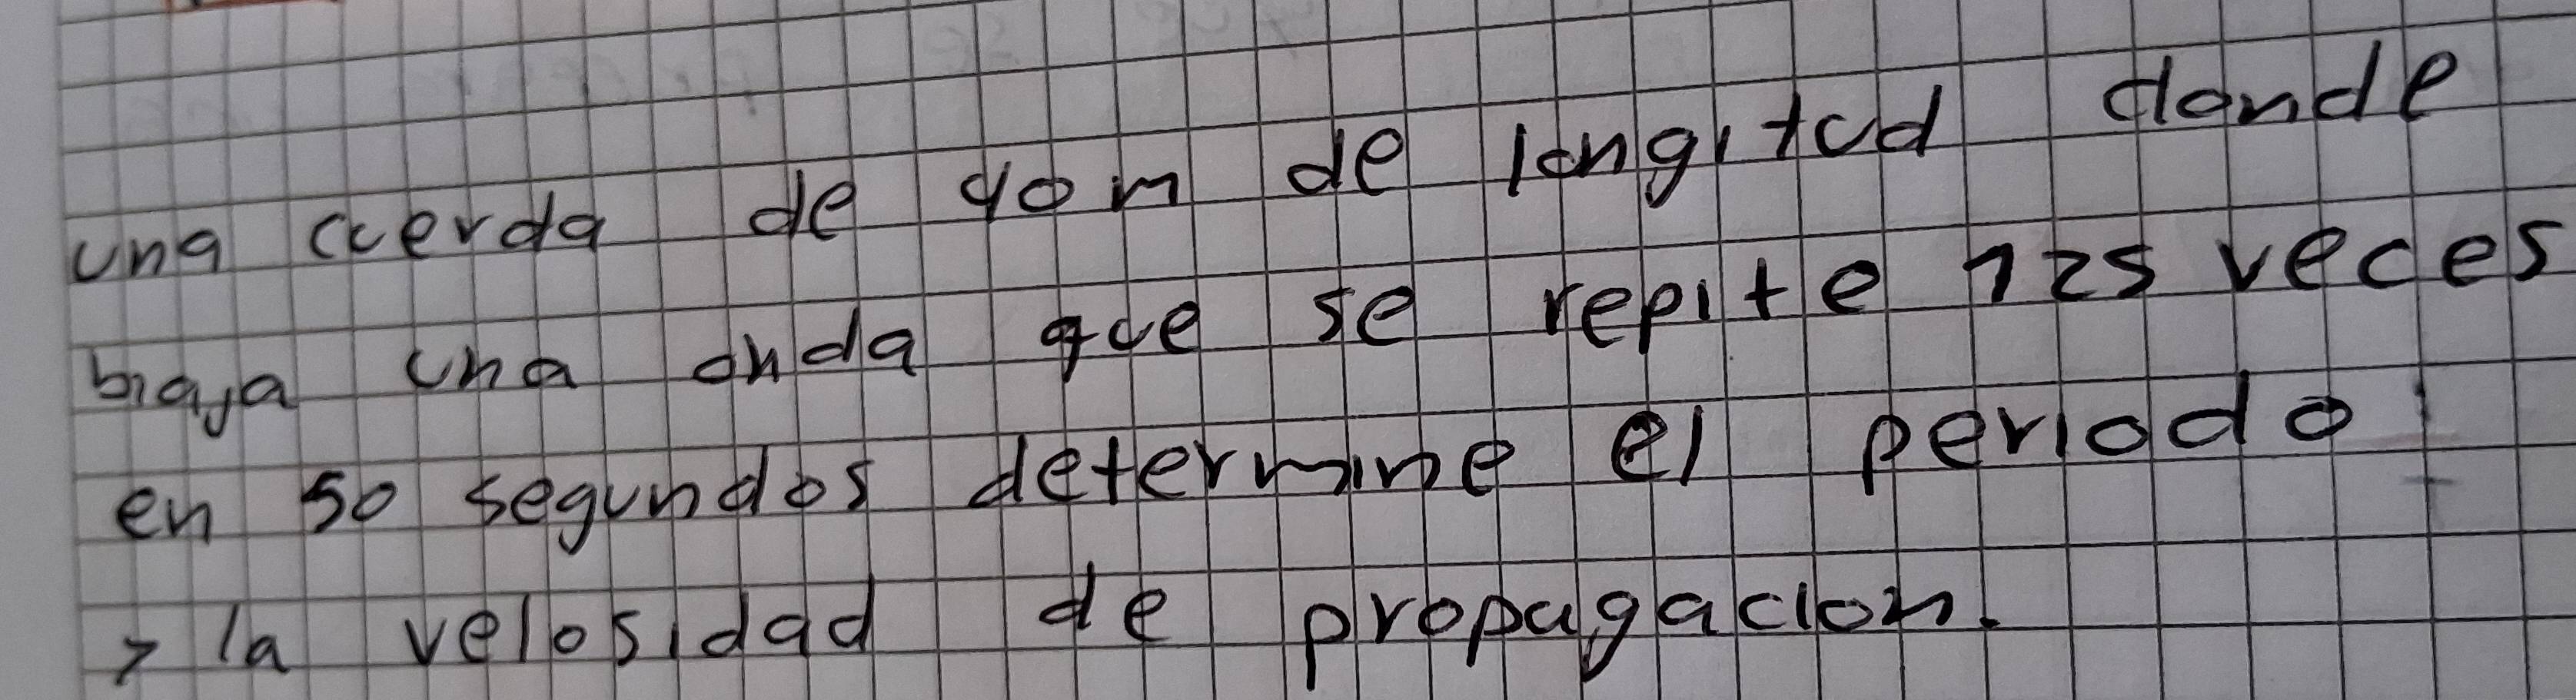 una cuerda de 40m de longitud donde
biaja una onda que se repite 125 veces
en 50 segundos determine el periodo
y la velosidad de propagacion.